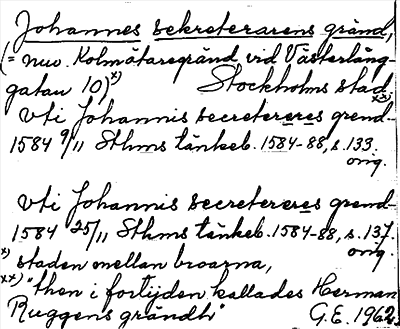 Johannes sekreterarens gränd,
(= nuv. Kolmätaregränd vid Västerlång-
gatan 10) x) Stockholms stad. xx)
vti Johannis secretereres grend
1584 9/11 Sthms tänkeb. 1584-88, s. 133.
orig.
vti Johannis secretereres grend
1584 25/11 Sthms tänkeb. 1584-88, s. 137.
orig.
x) staden mellan broarna,
xx) "then i fortijden kallades Herman
Ruggens grändh" G.E. 1962.